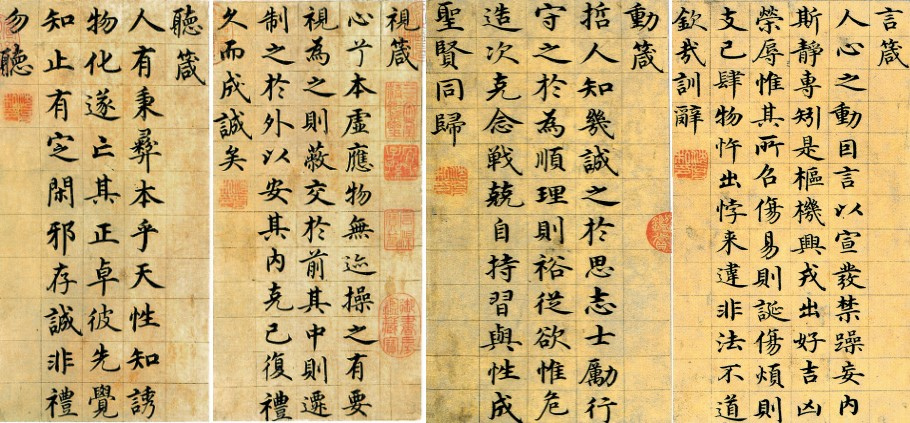 言箴
人心之動因言以宣發禁躁妄内
斯静專矧是樞機興戎出好吉凶
榮辱惟其所召傷易則誕傷煩則
支己肆物忤出悖来違非法不道
欽哉訓辭
動箴
哲人知幾誠之於思志士勵行
守之於為順理則裕從欲惟危
造次克念戦兢自持習與性成
聖賢同歸
視箴
心兮本虛應物無迹操之有要
視為之則蔽交於前其中則遷
制之於外以安其内克己復禮
久而成誠矣
聽箴
人有秉彝本乎天性知誘
物化遂亡其正卓彼先覺
知止有定閑邪存誠非禮
勿聽